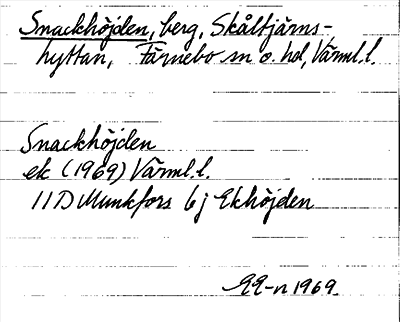 Snackhöjden, berg, Skåltjärns-
hyttan, Färnebo sn o. hd, Värml.l.
Snackhöjden
ek (1969) Värml.l.
11D Munkfors 6j Ekhöjden
-n 1969.